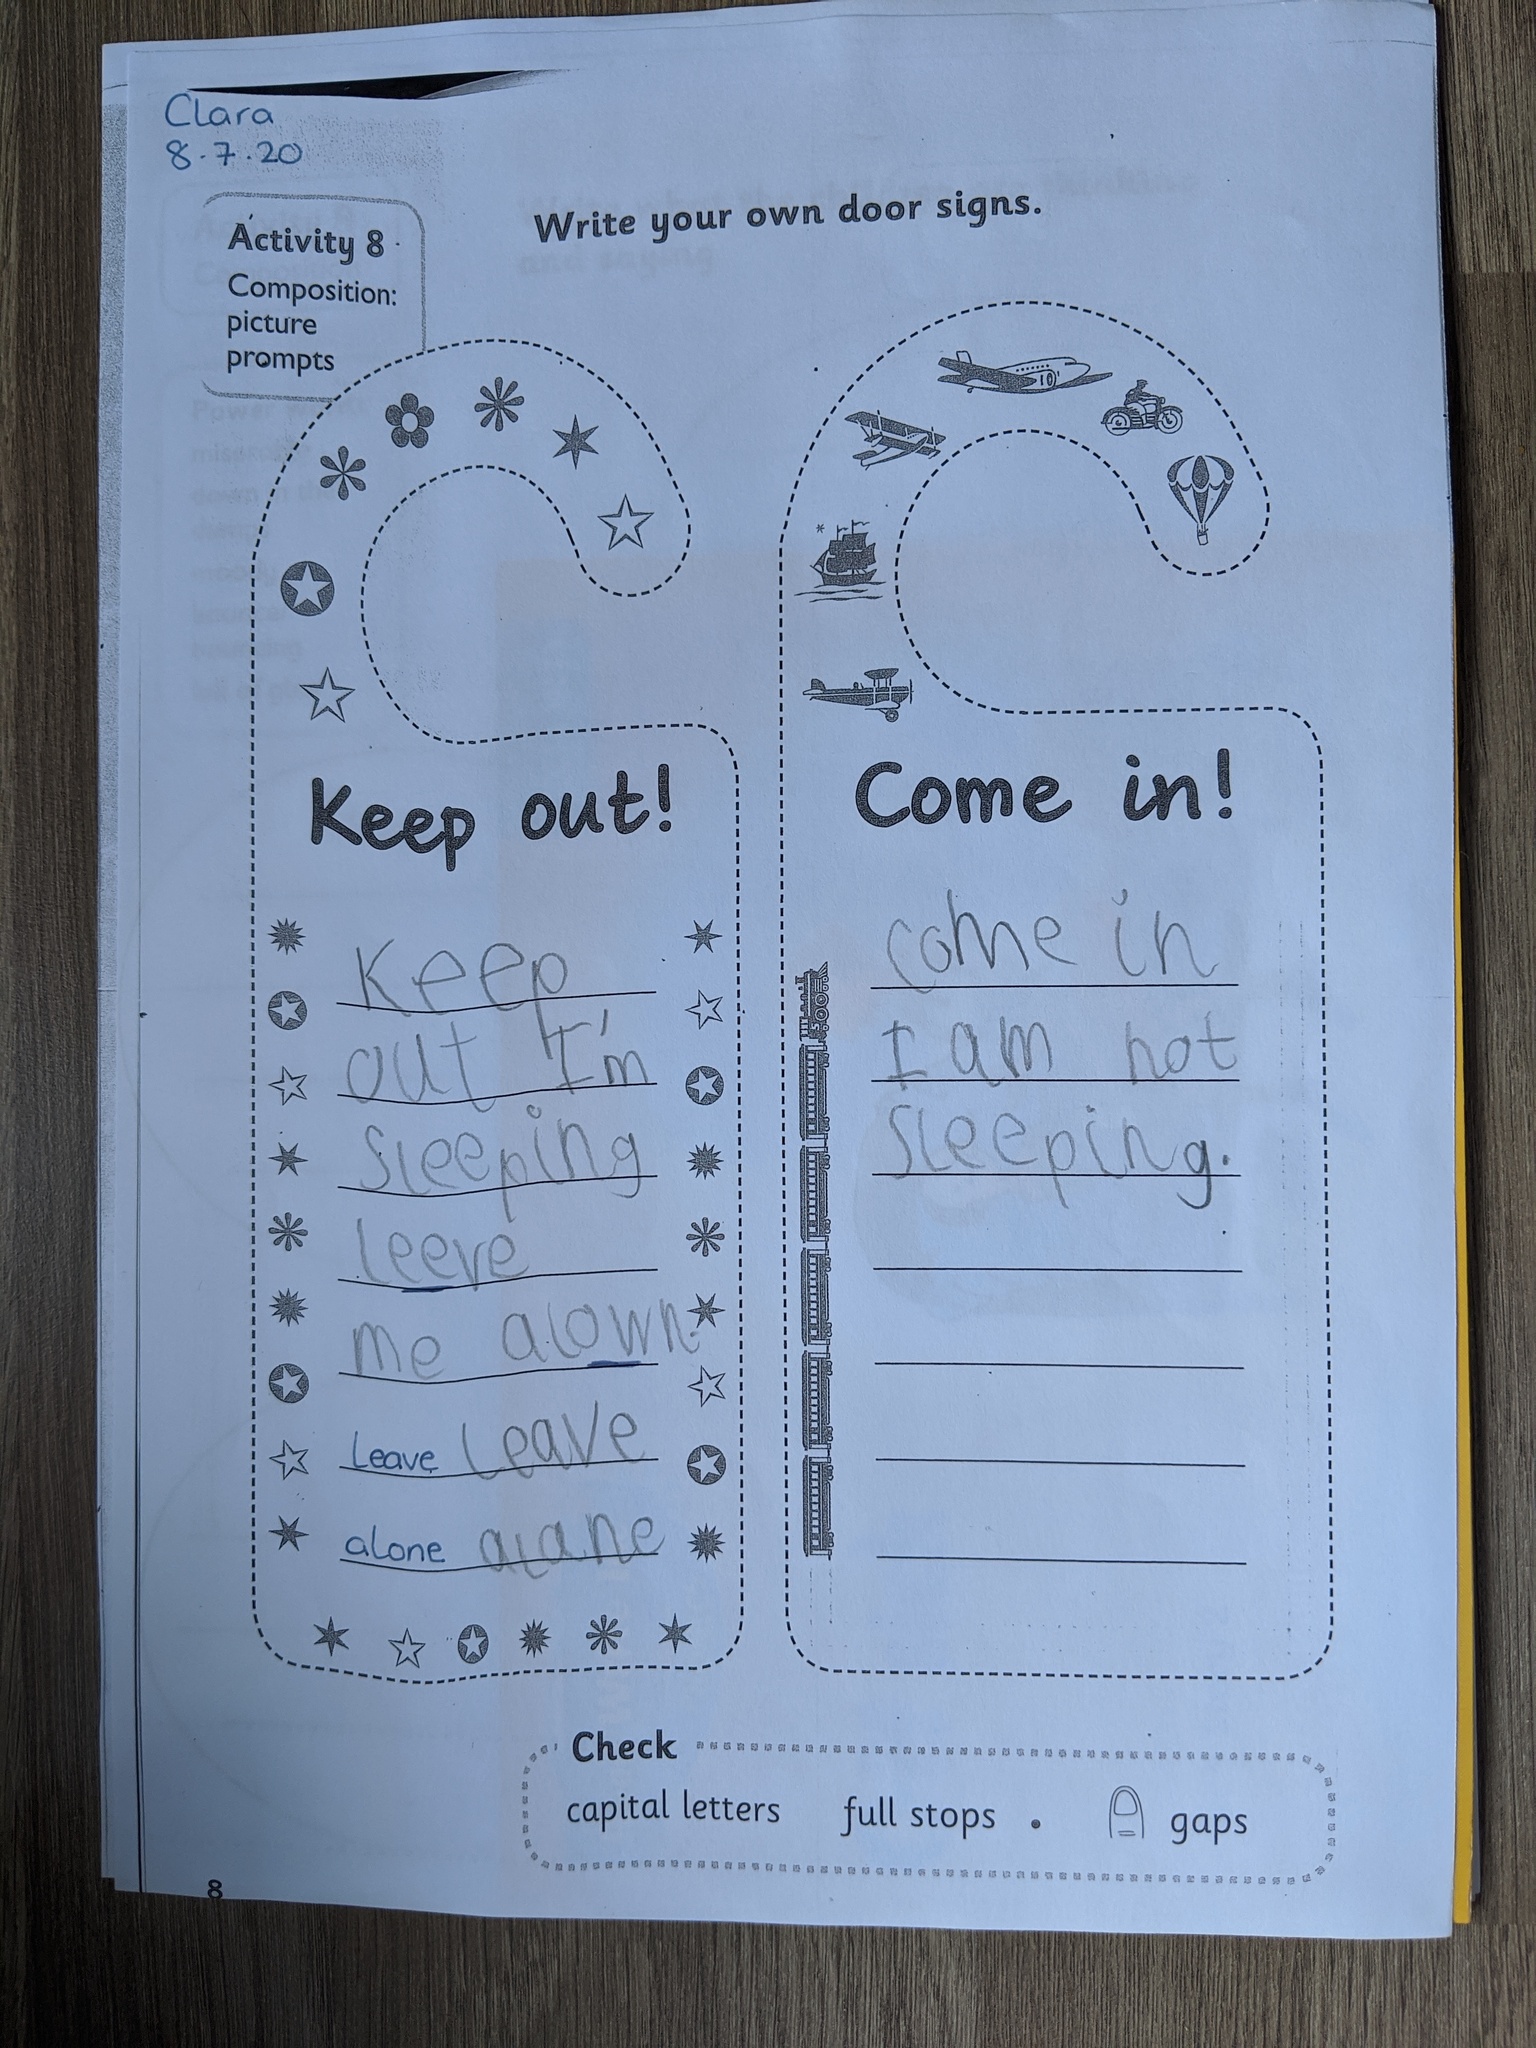 Clara
8.7.20
Activity 8
Composition:
picture
prompts
Write your own door signs.
Keep out!
Keep
out I'm
Sleeping
leeve
me alown.
Leave Leave
alone alane
Come in!
come in
I am not
Sleeping.
Check
capital letters full stops . gaps
8